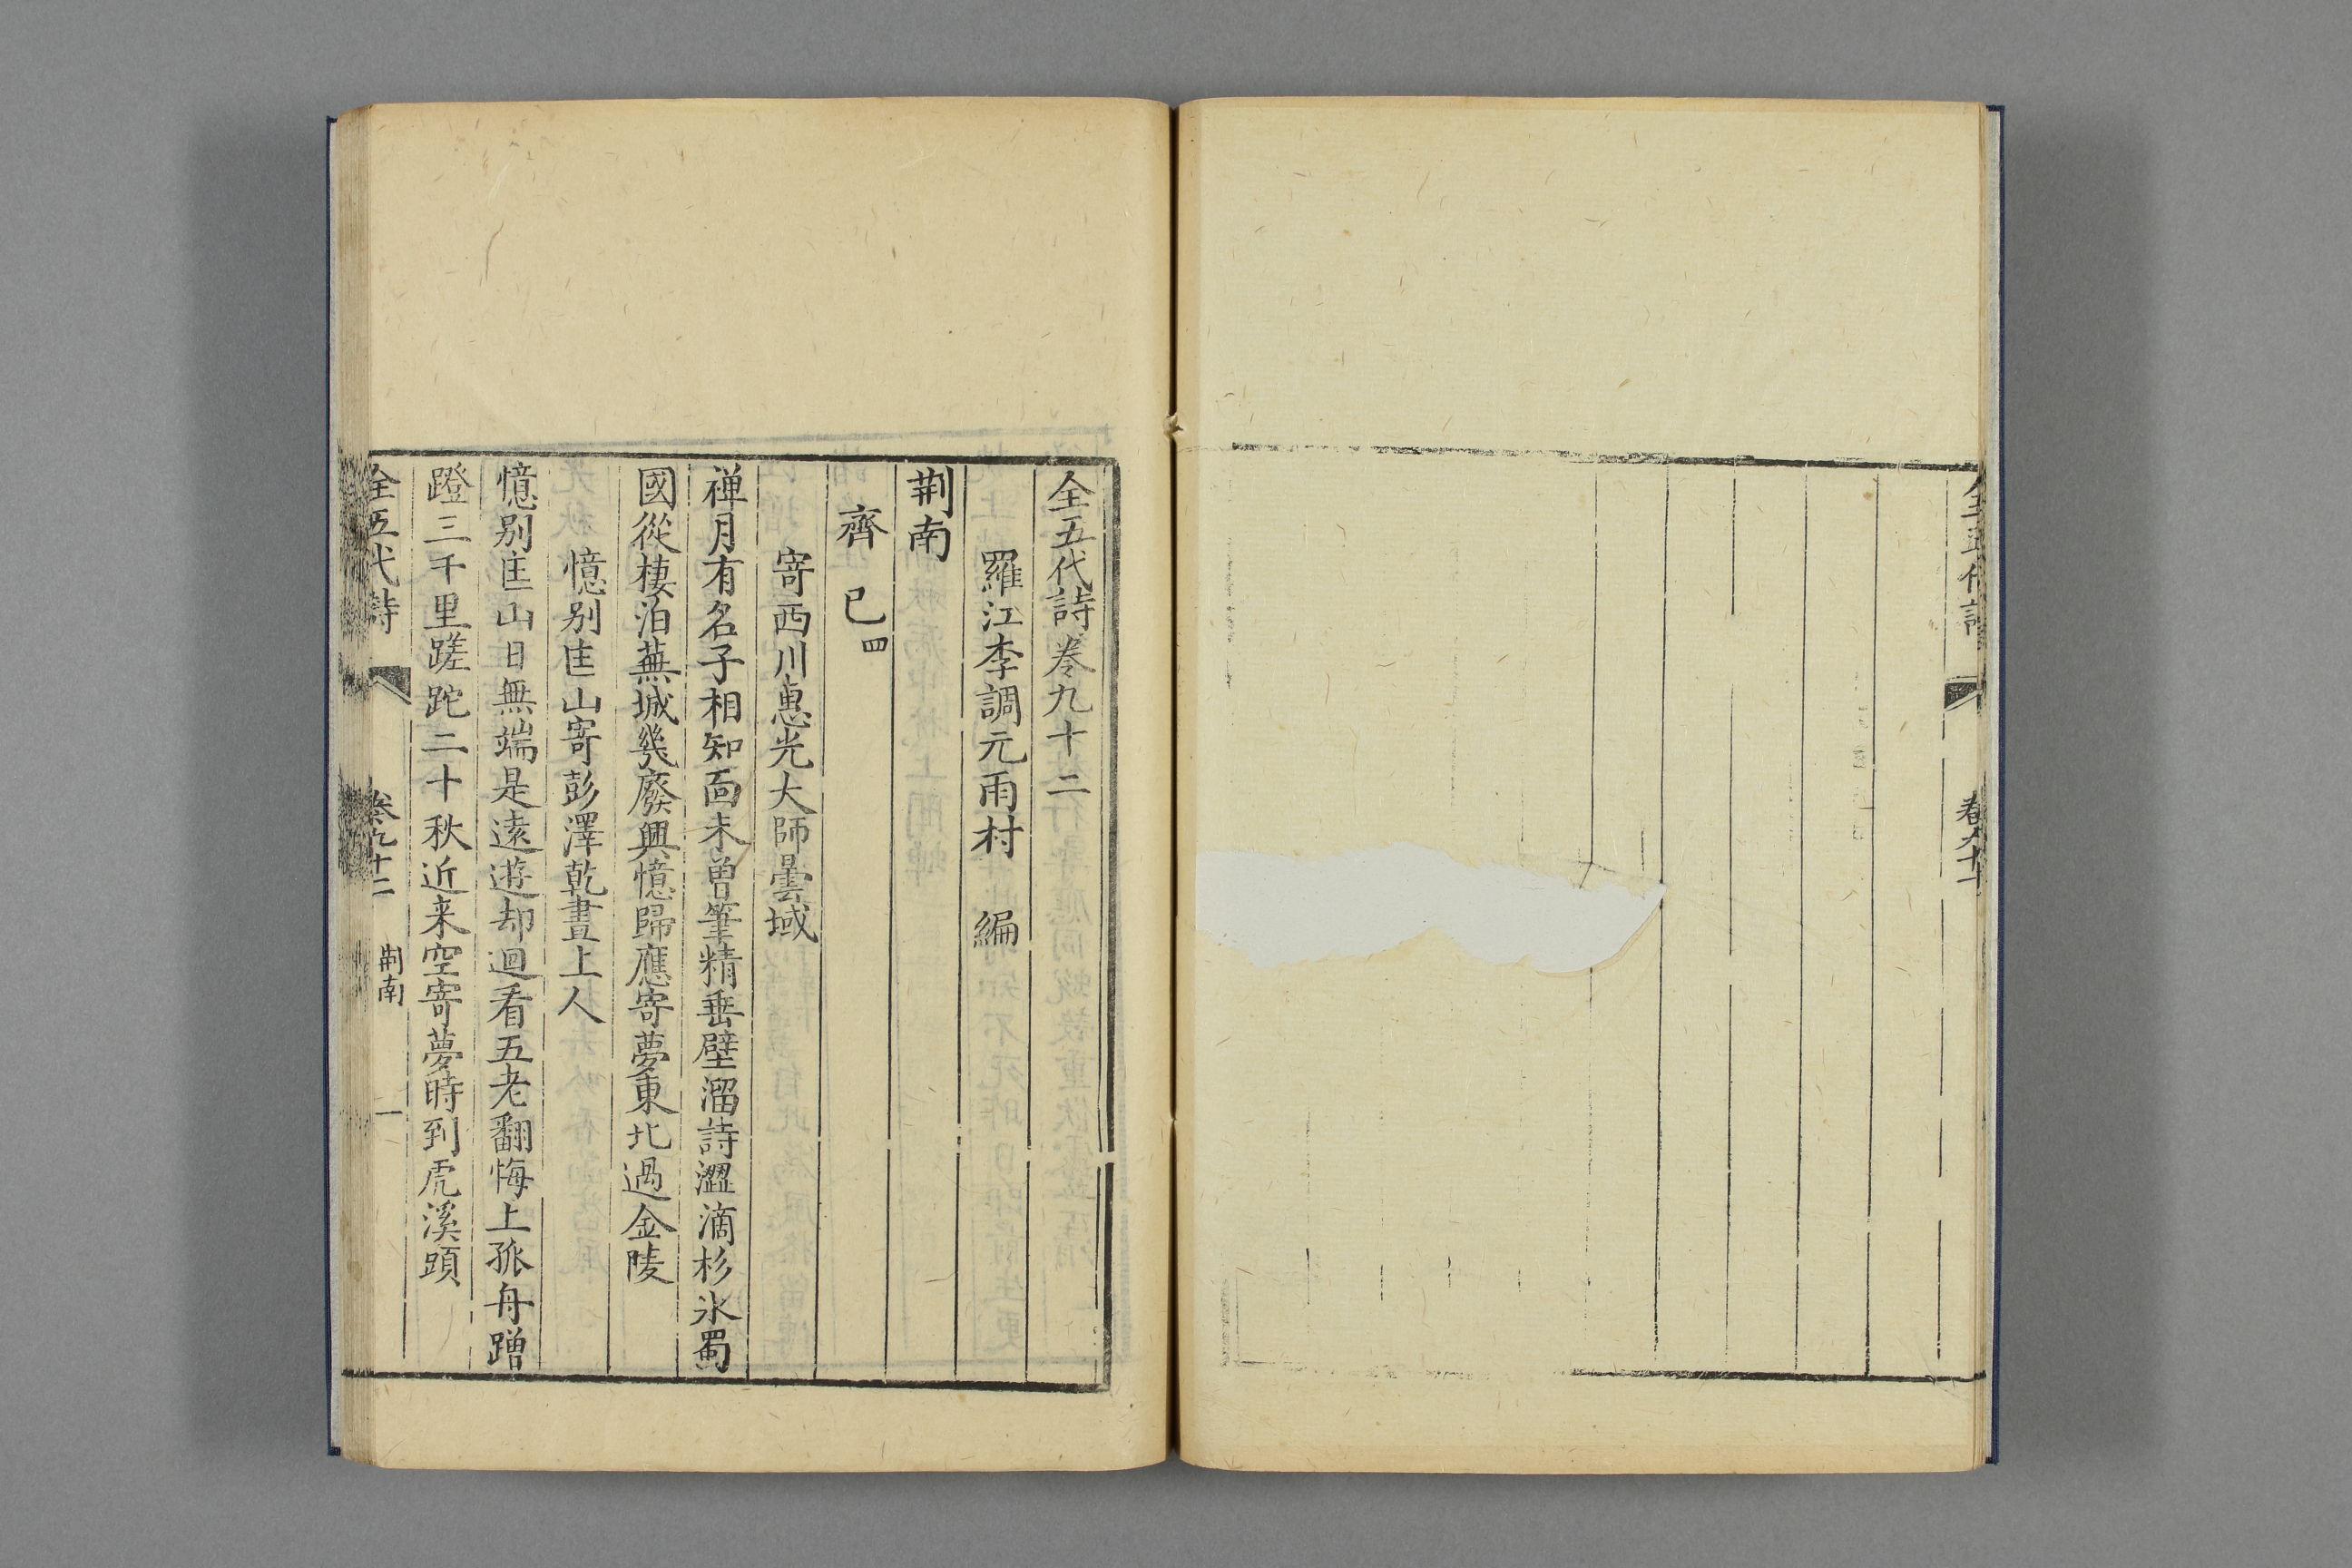 全五代詩
卷九十一
全五代詩卷九十二
羅江李調元雨村 編
荆南
齊已四
寄西川惠光大師曇域
禅月有名子相知面未曽筆精垂壁溜詩澀滴杉氷蜀
國從棲泊蕪城幾廢興憶歸應寄夢東北過金陵
憶别匡山寄彭澤乾晝上人
憶别匡山日無端是遠遊却迴看五老翻悔上孤舟蹭
蹬三千里蹉跎二十秋近来空寄夢時到虎溪頭
全五代詩
卷九十二
荆南
一